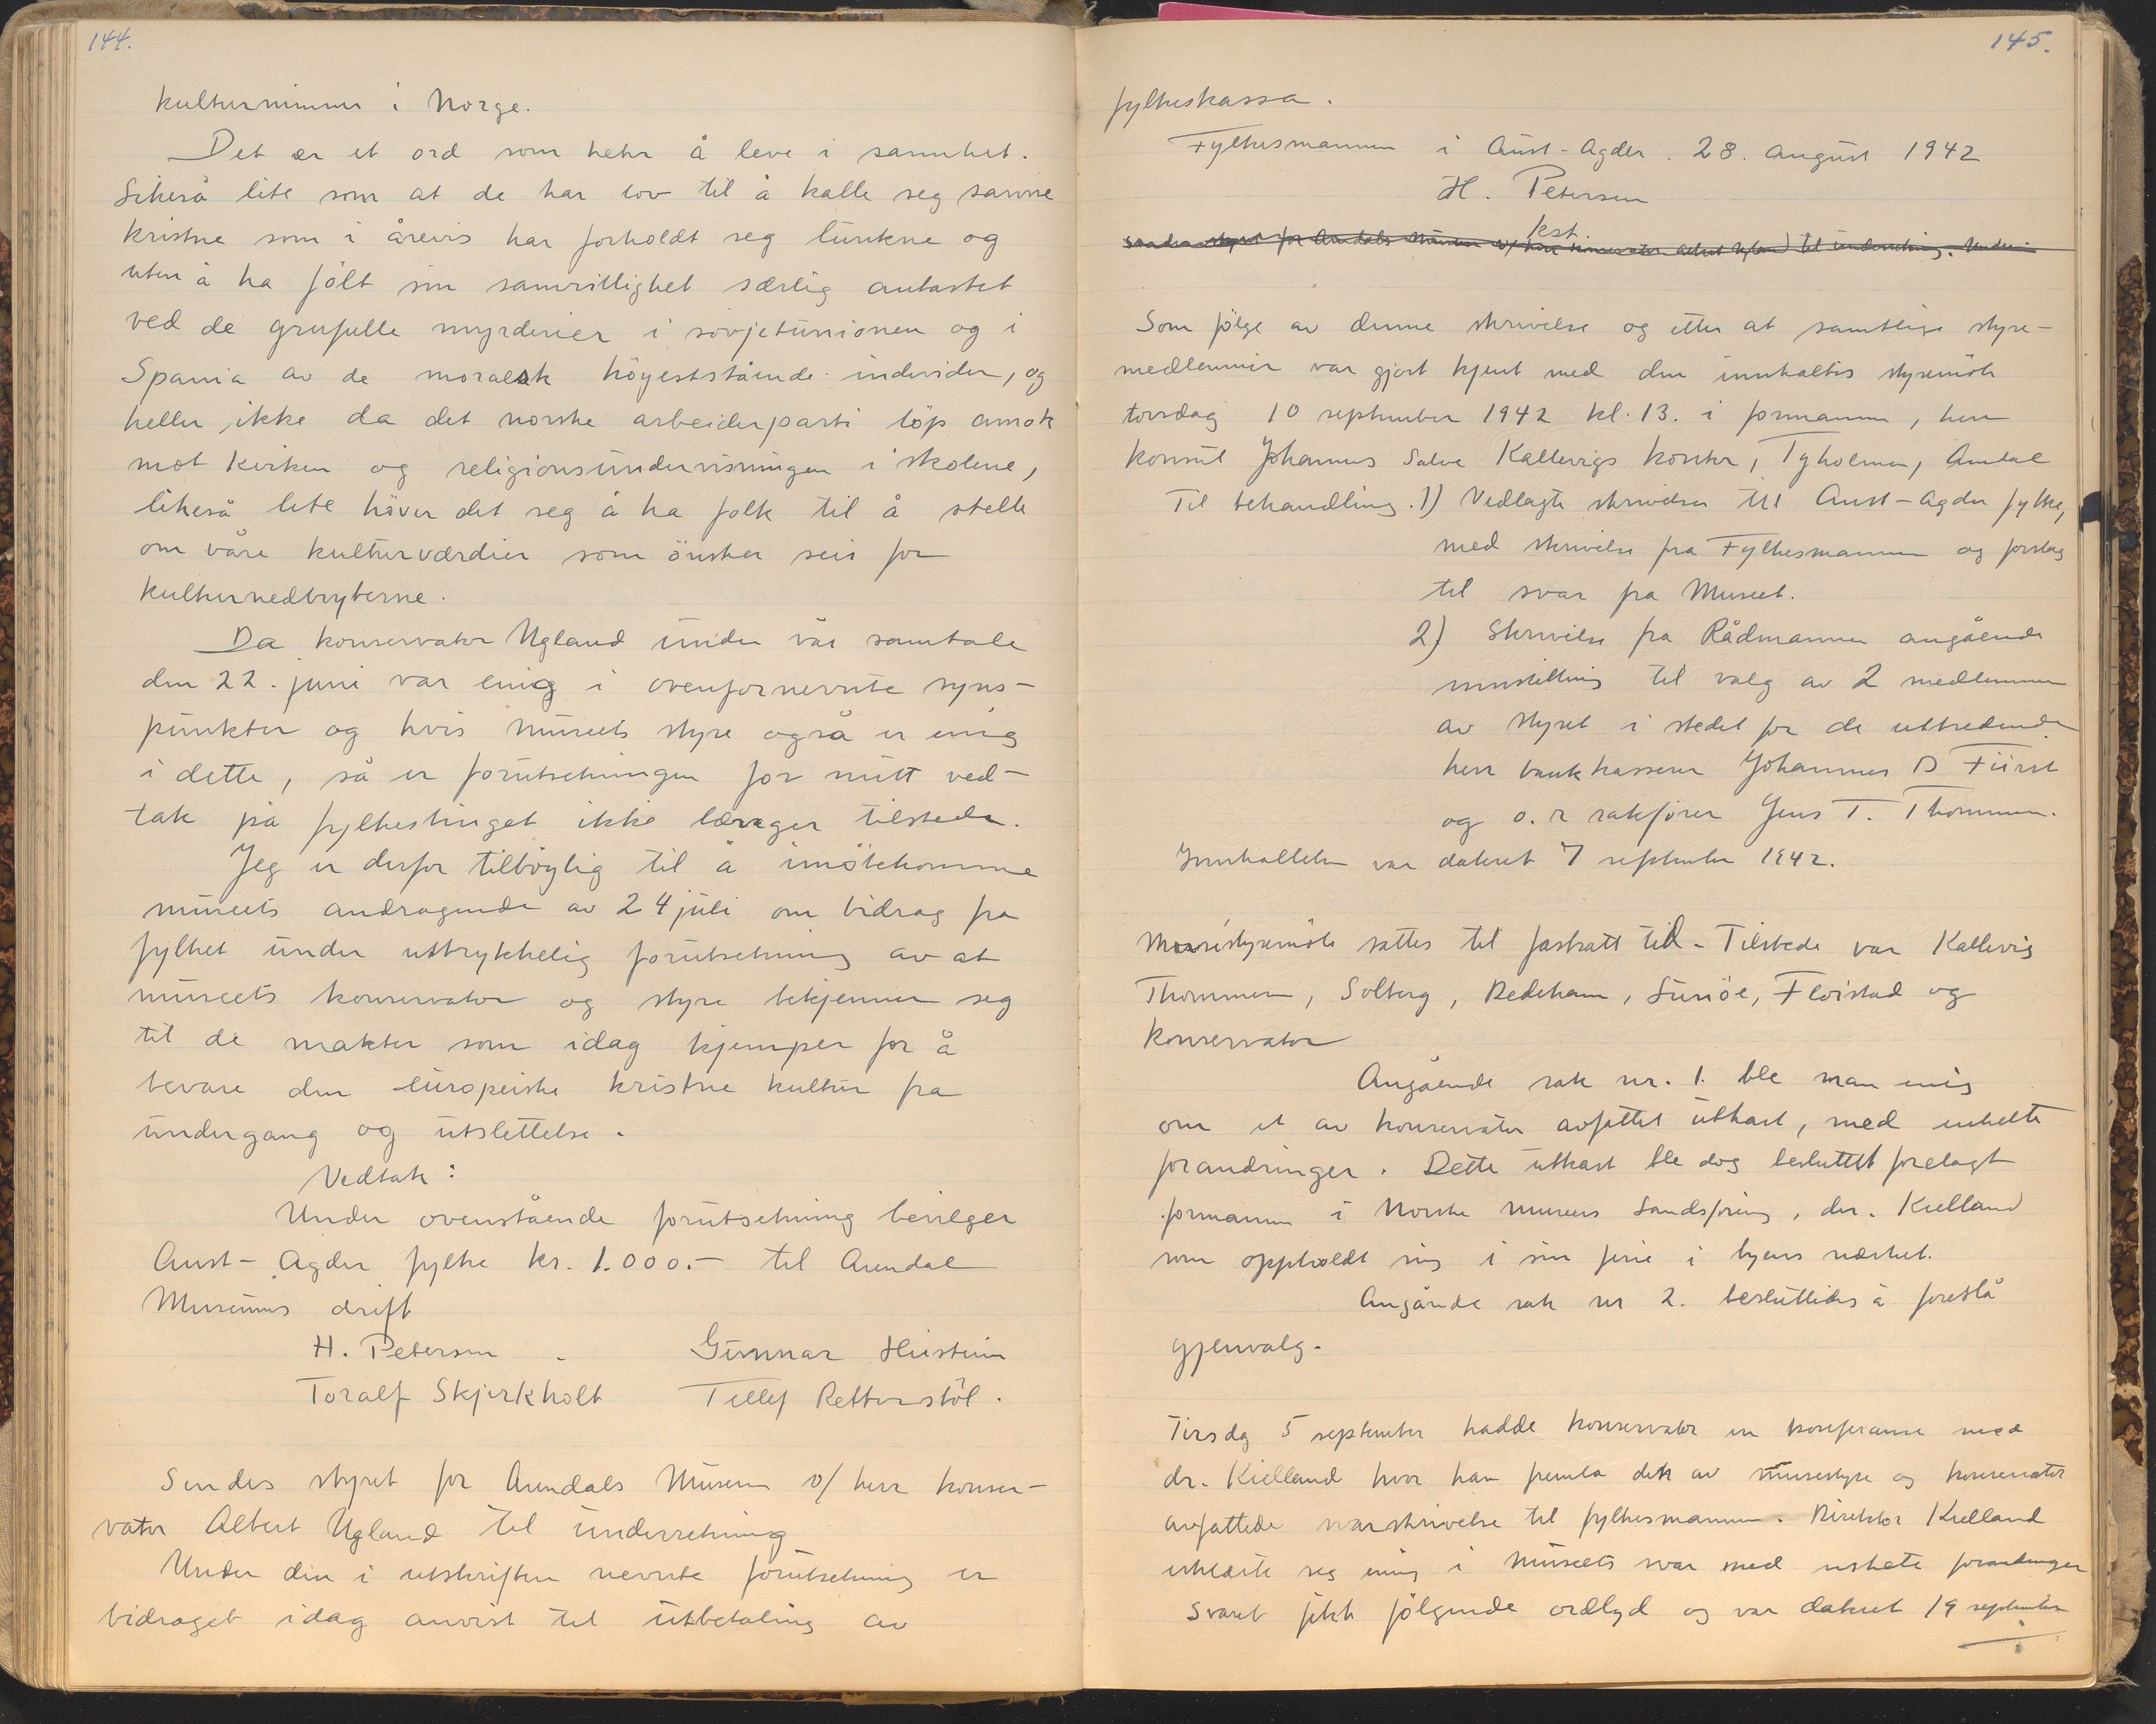 144.
kulturminner i Norge.
Det er et ord som heter å leve i sannhet.
Likeså lite som at de har lov til å kalle seg sanne
kristne som i årevis har forholdt seg lunkne og
uten å ha fölt sin samvittighet særlig antastet
ved de grufulle myrderier i sovjetunionen og i
Spania av de moralsk höyeststående individer, og
heller ikke da det norske arbeiderparti löp amok
mot kirken og religionsundervisningen i skolene,
likeså lite höver det seg å ha folk til å stelle
om våre kulturværdier som önsker seir for
kulturnedbryterne.
Da konservator Ugland under vår samtale
den 22. juni var enig i ovenfornevnte syns-
punkter og hvis museets styre også er enig
i dette, så er forutsetningen for mitt ved-
tak på fylkestinget ikke lenger tilstede.
Jeg er derfor tilböylig til å imötekomme
museets andragende av 24 juli om bidrag fra
fylket under uttrykkelig forutsetning av at
museets konservator og styre bekjenner seg
til de makter som idag kjemper for å
bevare den europeiske kristne kultur fra
undergang og utslettelse.
Vedtak:
Under ovenstående forutsetning bevilger
Aust-Agder fylke kr. 1.000.- til Arendal
Museums drift
H. Petersen . Gunnar Heistein
Toralf Skjerkholt Tellef Retterstöl.
Sendes styret for Arendals Museum v/ herr konser-
vator Albert Ugland til underretning
Under den i utskriften nevnte forutsetning er
bidraget idag anvist til utbetaling av
145.
fylkeskassa.
Fylkesmannen i Aust-Agder. 28. august 1942
H. Petersen
kst.
Sendes styret for Arendals Museum v/ herr konservator Albert Ugland til underretning. Under
Som fölge av denne skrivelse og etter at samtlige styre-
medlemmer var gjort kjent med den innkaltes styremöte
torsdag 10 september 1942 kl. 13. i formannen, herr
konsul Johannes Salve Kallevigs kontor, Tyholmen, Arendal
Til behandling. 1) Vedlagte skrivelser til Aust-Agder fylke,
med skrivelse fra Fylkesmannen og forslag
til svar fra Museet.
2) Skrivelse fra Rådmannen angående
innstilling til valg av 2 medlemmer
av styret i stedet for de uttredende
herr bankkasserer Johannes D Fürst
og o.r sakförer Jens T. Thommesen.
Innkallelsen var datert 7 september 1942.
Museistyremöte sattes til fastsatt tid - Tilstede var Kallevig
Thommesen, Solberg, Dedekam, Sunöe, Flöistad og
konservator
Angående sak nr. 1. ble man enig
om et av konservator avfattet utkast, med enkelte
forandringer. Dette utkast ble dog besluttet forelagt
formannen i Norske museers Landsforing, dr. Kielland
som oppholdt sig i sin ferie i byens nærhet.
Angående sak nr 2. besluttedes å foreslå
gjenvalg.
Tirsdg 5 september hadde konservator en konferanse med
dr. Kielland hvor han fremla det av musestyre og konservator
avfattede svarskrivelse til fylkesmannen. Direktör Kielland
erklærte seg enig i Museets svar med enkelte forandringer
Svaret fikk fölgende ordlyd og var datert 19 september